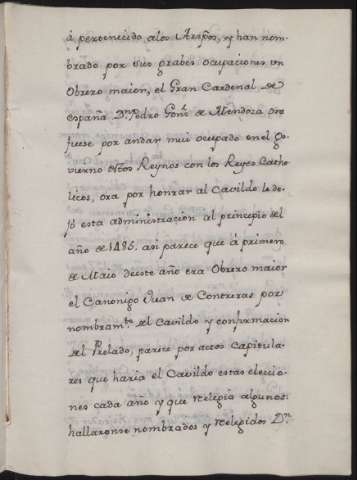 á pertenecido alos Arzpos, y han nom-
brado por sus grabes ocupaciones un
Obrero maior, el Gran Cardenal de
españa Dn Pedro Gonz. de Mendoza ora
fuese por andar mui ocupado en el go-
vierno destos Reynos con los Reyes Catho-
licos, ora por honrar al Cavildo le de-
jó esta administracion al principio del
año de 1485. asi parece que á primero
de Maio de este año era Obrero maior
el Canonigo Juan de Contreras por
nombramto del Cavildo y confirmacion
del Prelado, parece por actos capitula-
res que haria el Cavildo estas eleccio-
nes cada año y que relegia algunos:
hallaronse nombrados y relegidos Dn